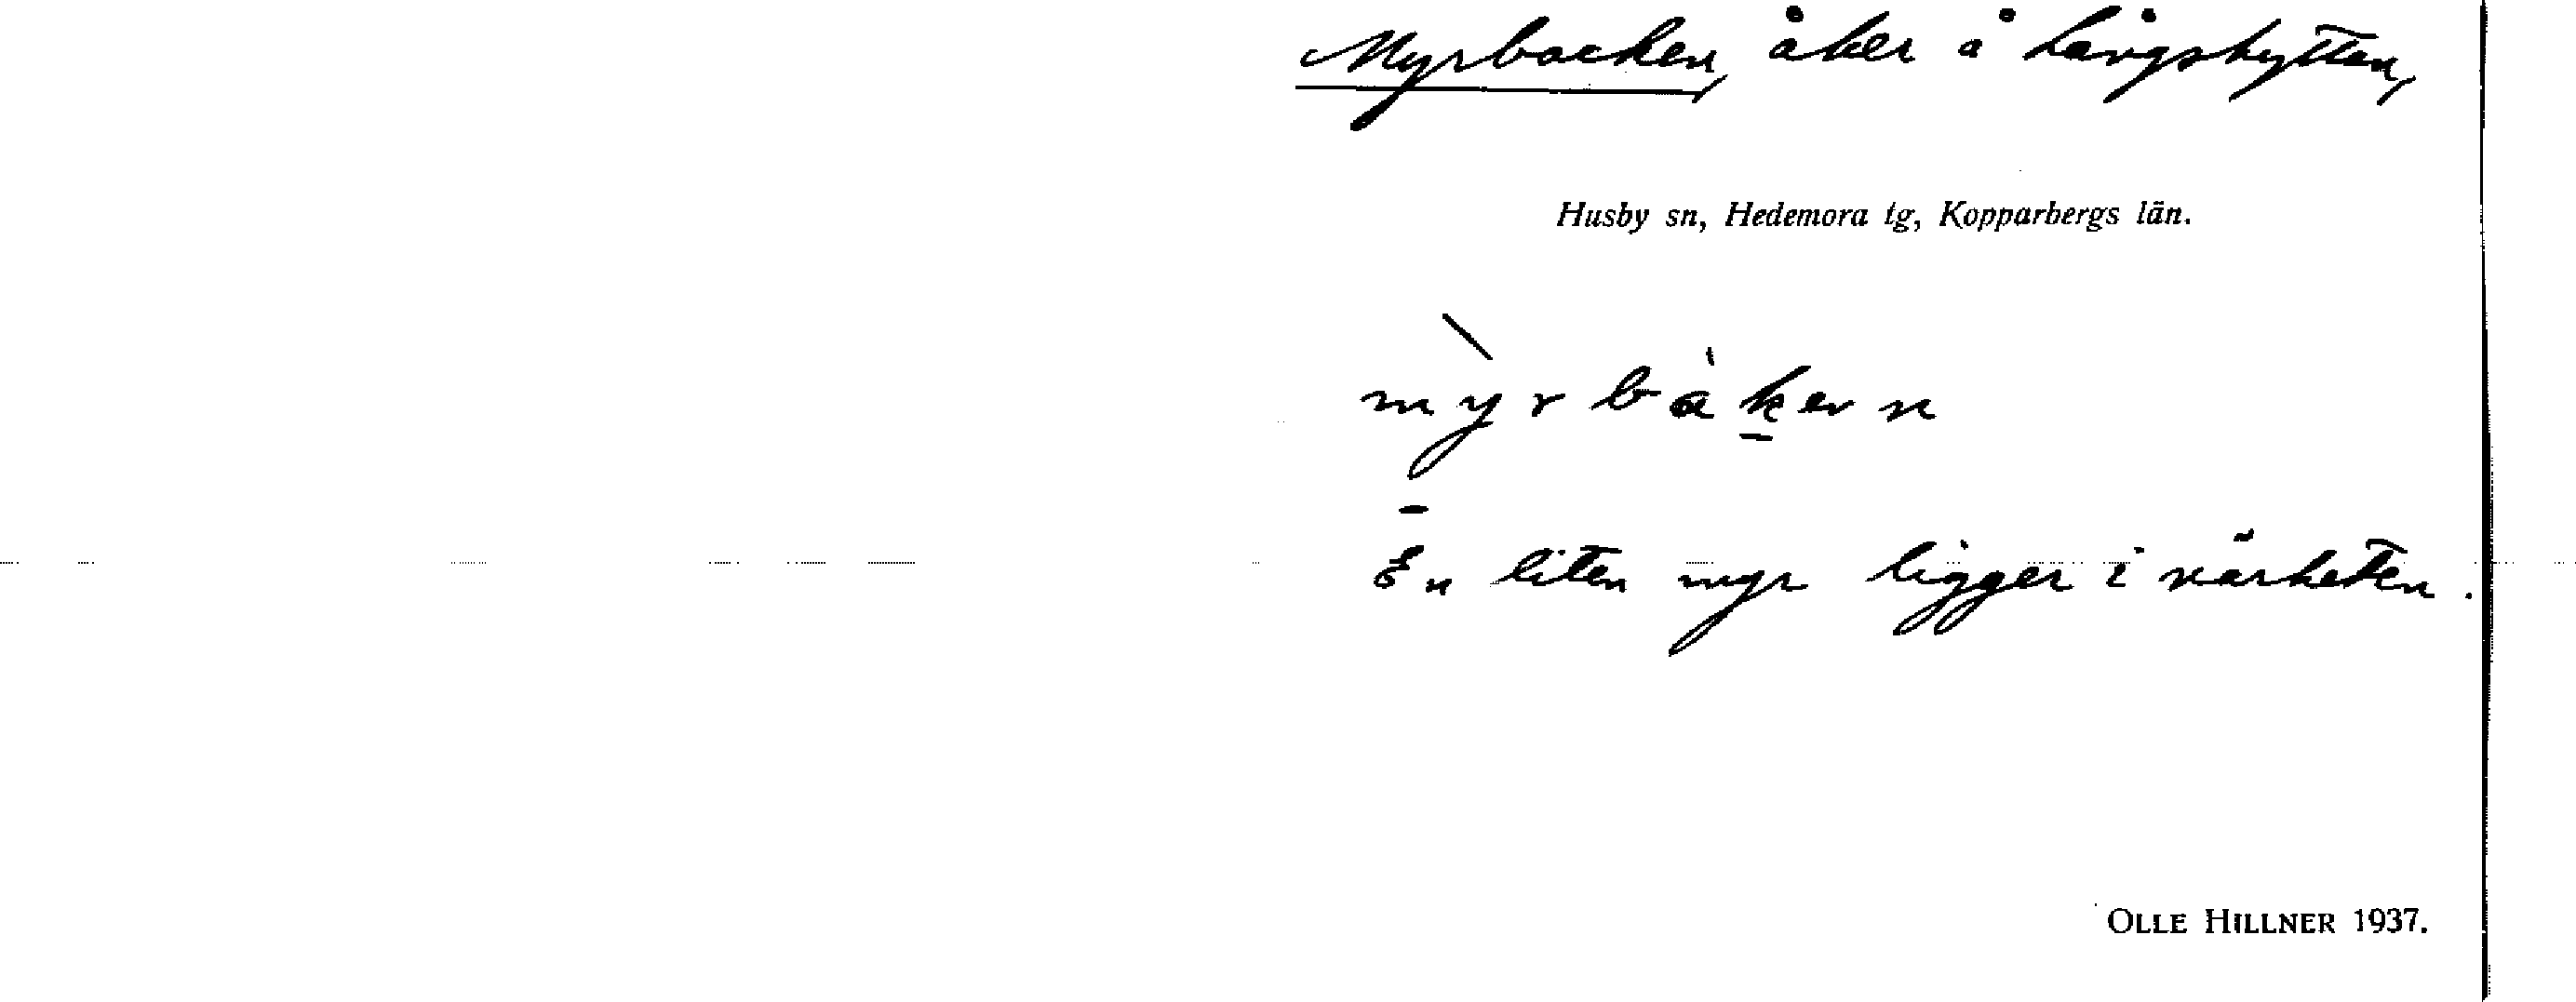 Myrbacken, åker å Långshyttan,
Husby sn, Hedemora tg, Kopparbergs län.
En liten myr ligger i närheten.
OLLE HILLNER 1937.